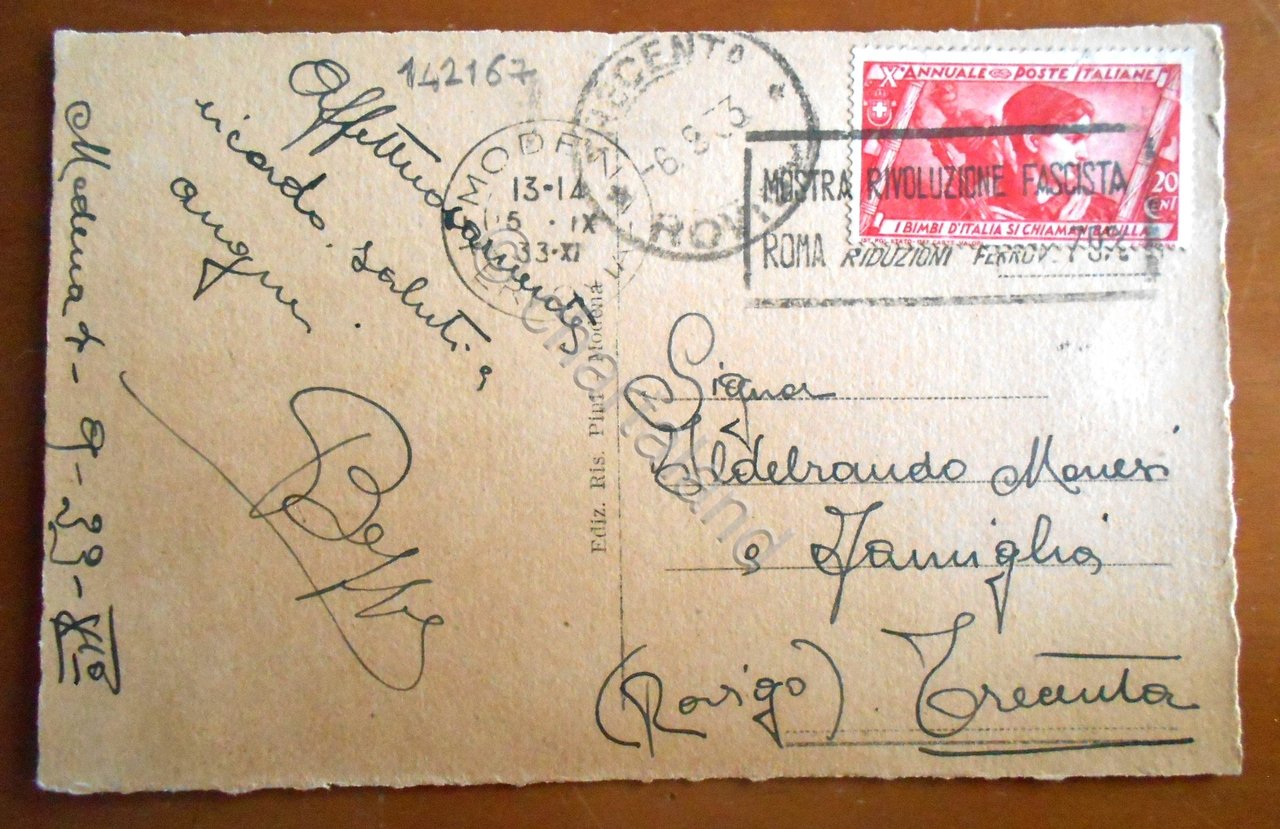 142167
Affettuosamente
ricordo. Saluti a
Modena
Beppe
MODENA
13-14
5 · IX
33-XI
FERROVIA
TRECENTA *
-6.9.33
* ROVIGO
X° ANNUALE POSTE ITALIANE
20
CENT
I BIMBI D'ITALIA SI CHIAMAN BALILLA
MOSTRA RIVOLUZIONE FASCISTA
ROMA RIDUZIONI FERROV. 70%
Ediz. Ris. Pini - Modena
Signor
Ildebrando
e Famiglia
(Rovigo) . Trecenta
© Chartaland